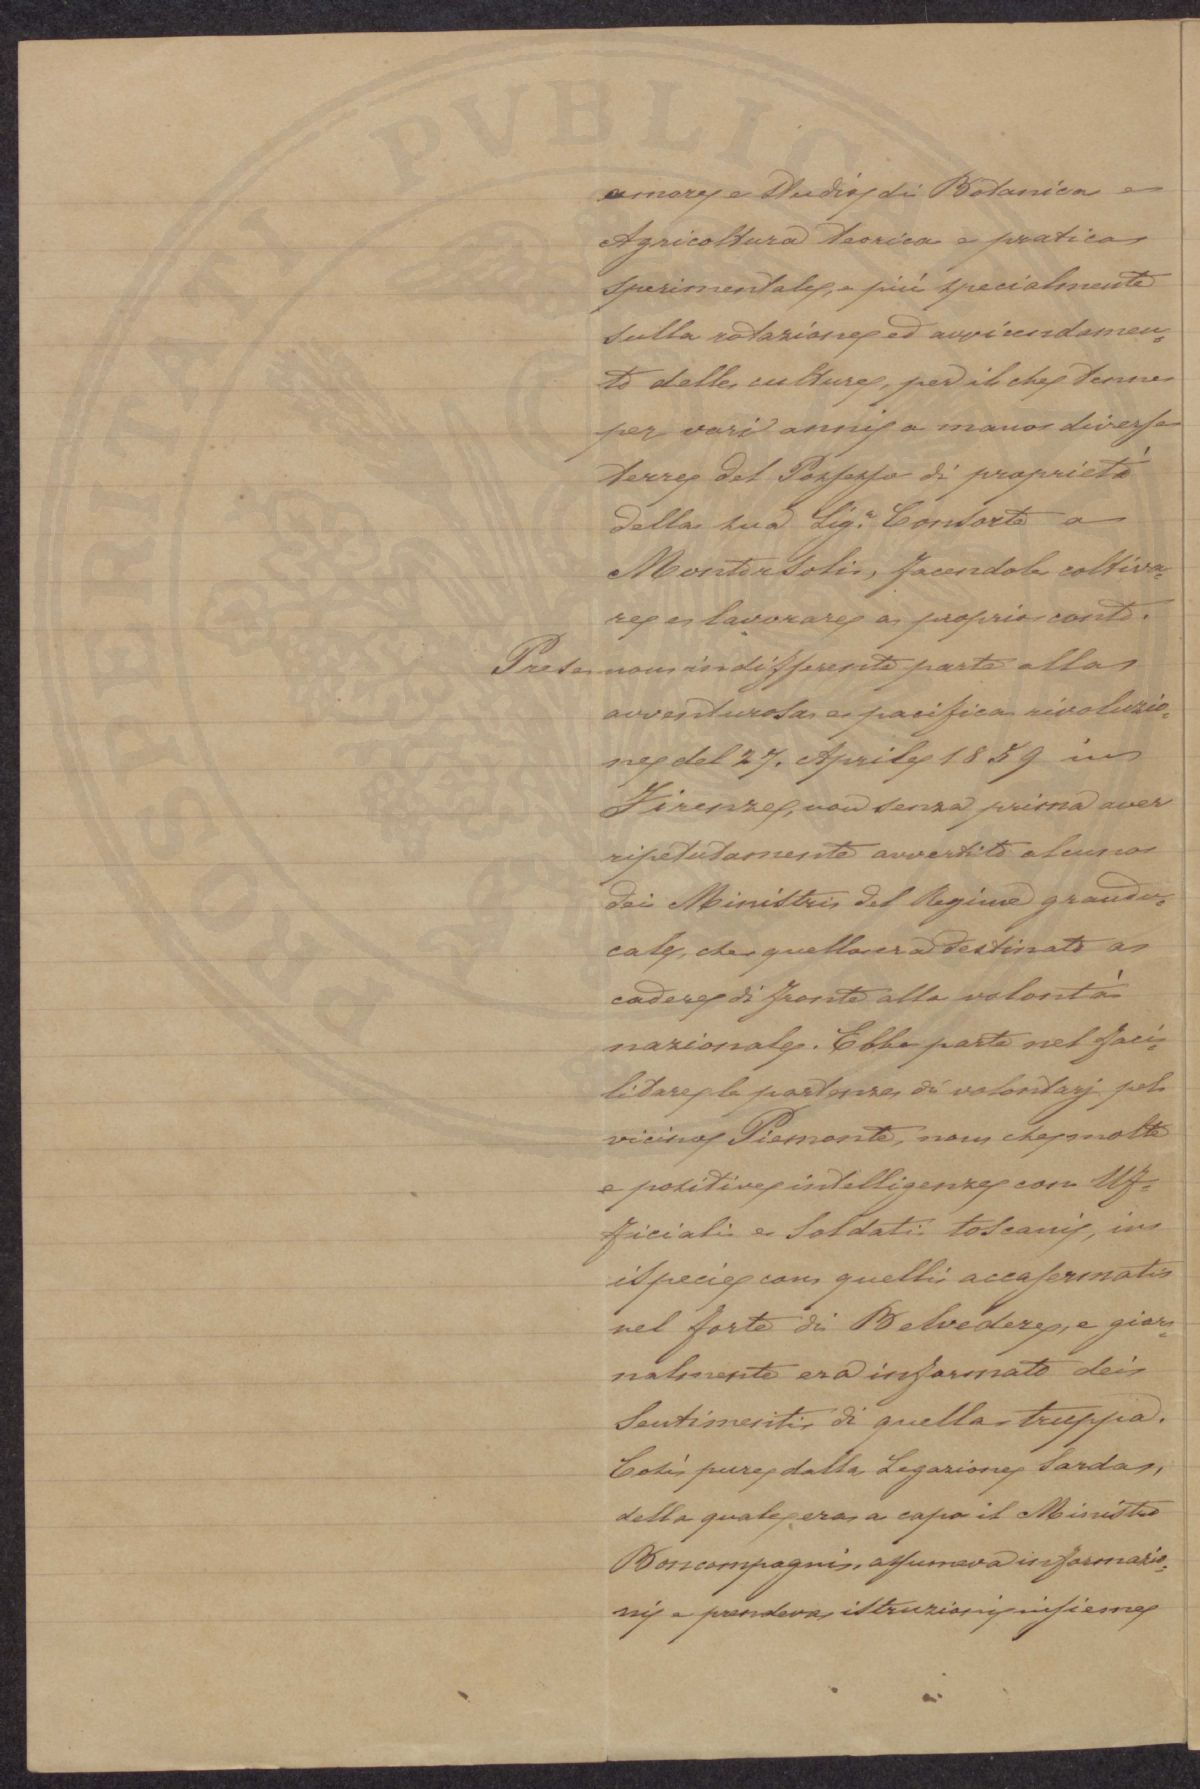 amore e studio di Botanica e
Agricoltura teorica e pratica
sperimentale, e più specialmente
sulla rotazione ed avvicendamen-
to delle culture, per il che tenne
per varj anni a mano diverse
terre del Possesso di proprietà
della sua Sig.ra Consorte a
Montorsoli, facendole coltiva-
re e lavorare a proprio conto.
Prese non indifferente parte alla
avventurosa e pacifica rivoluzio-
ne del 27. Aprile 1859 in
Firenze, non senza prima aver
ripetutamente avvertito alcuno
dei Ministri del Regime grandu-
cale, che quello era destinato a
cadere di fronte alla volontà
nazionale. Ebbe parte nel faci-
litare le partenze di volontarj pel
vicino Piemonte, non che molte
e positive intelligenze con Uf-
ficiali e Soldati toscani, in
ispecie con quelli accasermati
nel forte di Belvedere, e gior-
nalmente era informato dei
Sentimenti di quella truppa.
Così pure dalla Legazione Sarda,
della quale era a capo il Ministro
Boncompagni, assumeva informazio-
ni e prendeva istruzioni insieme